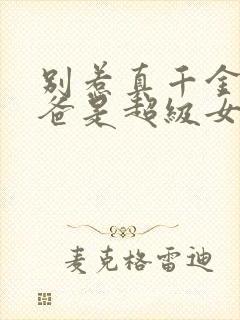 别惹真千金
爸是超级女
麦克格雷迪